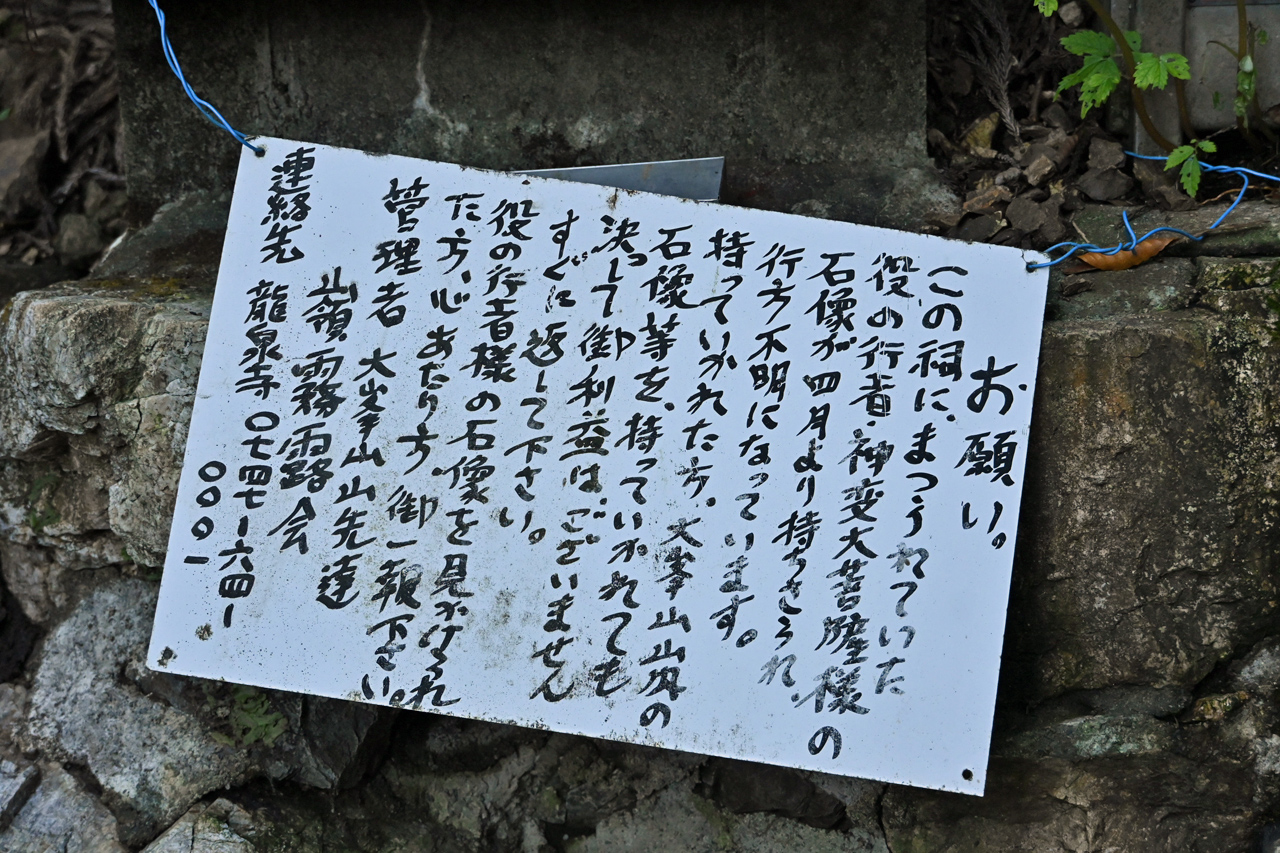 お願い。
この祠に、まつられていた
役の行者・神変大菩薩様の
石像が四月より持ちさられ、
行方不明になっています。
持っていかれた方、大峯山山内の
石像等を、持っていかれても
決して御利益は、ございません
すぐに返して下さい。
役の行者様の石像を見かけられ
た方、心あたり方、御一報下さい。
管理者 大峯山山先達
山嶺雨霧露会
連絡先 龍泉寺 〇七四七ー六四ー
〇〇〇一